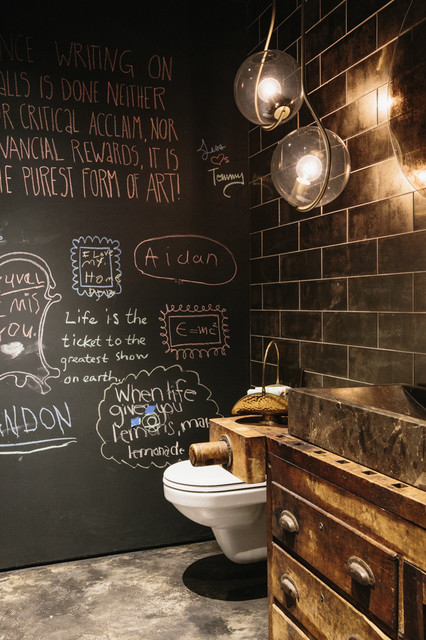 NCE WRITING ON
ALLS IS DONE NEITHER
R CRITICAL ACCLAIM, NOR
NANCIAL REWARDS, IT IS
E PUREST FORM OF ART!
Tommy
I Love
my
Hom
Aidan
uval
I mis
you.
E=mc²
Life is the
ticket to the
greatest show
on earth.
When life
gives you
lemons, mak
lemonade
ANDON